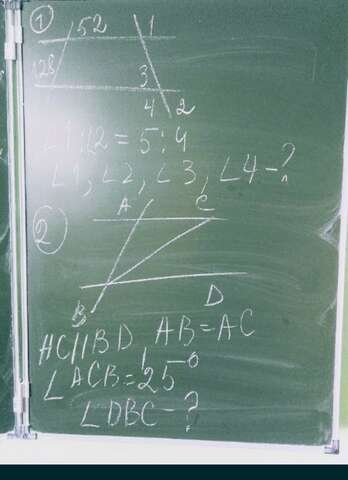 1 52 1
128 3
4 2
∠1:∠2 = 5:4
∠1, ∠2, ∠3, ∠4-?
2 A C
B D
AC||BD AB=AC
∠ACB=25°
∠DBC-?